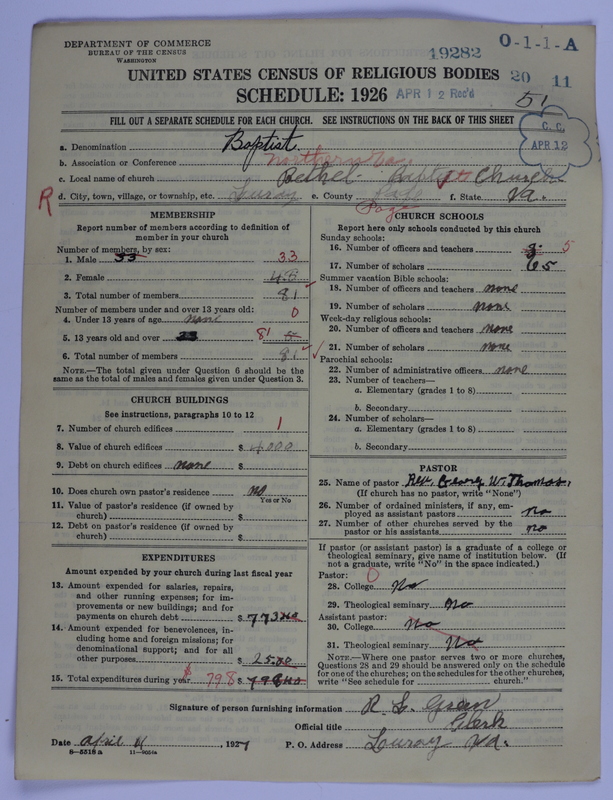 DEPARTMENT OF COMMERCE
BUREAU OF THE CENSUS
WASHINGTON
19282
O-1-1-A
UNITED STATES CENSUS OF RELIGIOUS BODIES
20 11
SCHEDULE: 1926
APR 12 Rec'd
51
FILL OUT A SEPARATE SCHEDULE FOR EACH CHURCH. SEE INSTRUCTIONS ON THE BACK OF THIS SHEET
C. C.
APR 12
a. Denomination Baptist
b. Association or Conference Northern Va.
c. Local name of church Bethel Baptist Church
R d. City, town, village, or township, etc. Luray e. County Page f. State Va.
MEMBERSHIP
Report number of members according to definition of
member in your church
Number of members, by sex:
1. Male 33 33
2. Female 48
3. Total number of members 81
Number of members under and over 13 years old:
4. Under 13 years of age none 0
5. 13 years old and over 33 81 5
6. Total number of members 81
NOTE.—The total given under Question 6 should be
same as the total of males and females given under Question 3.
CHURCH BUILDINGS
See instructions, paragraphs 10 to 12
7. Number of church edifices 1
8. Value of church edifices $ 4000
9. Debt on church edifices none $
10. Does church own pastor's residence no
Yes or No
11. Value of pastor's residence (if owned by
church) $
12. Debt on pastor's residence (if owned by
church) $
EXPENDITURES
Amount expended by your church during last fiscal year
13. Amount expended for salaries, repairs,
and other running expenses; for im-
provements or new buildings; and for
payments on church debt $ 773
14. Amount expended for benevolences, in-
cluding home and foreign missions; for
denominational support; and for all
other purposes $ 25
15. Total expenditures during year $ 798 $ 798
CHURCH SCHOOLS
Report here only schools conducted by this church
Sunday schools:
16. Number of officers and teachers 5
17. Number of scholars 65
Summer vacation Bible schools:
18. Number of officers and teachers none
19. Number of scholars none
Week-day religious schools:
20. Number of officers and teachers none
21. Number of scholars none
Parochial schools:
22. Number of administrative officers none
23. Number of teachers—
a. Elementary (grades 1 to 8)
b. Secondary
24. Number of scholars—
a. Elementary (grades 1 to 8)
b. Secondary
PASTOR
25. Name of pastor Rev. George W. Thomas.
(If church has no pastor, write "None")
26. Number of ordained ministers, if any, em-
ployed as assistant pastors no
27. Number of other churches served by the
pastor or his assistants no
If pastor (or assistant pastor) is a graduate of a college or
theological seminary, give name of institution below. (If
not a graduate, write "No" in the space indicated.)
Pastor: 0
28. College No
29. Theological seminary no
Assistant pastor:
30. College No
31. Theological seminary No
NOTE.—Where one pastor serves two or more churches,
Questions 28 and 29 should be answered only on the schedule
for one of the churches; on the schedules for the other churches,
write "See schedule for church."
Signature of person furnishing information R. L. Green
Official title Clerk
Date April 11, 1927 P. O. Address Luray Va.
8—5518 a 11—9054a